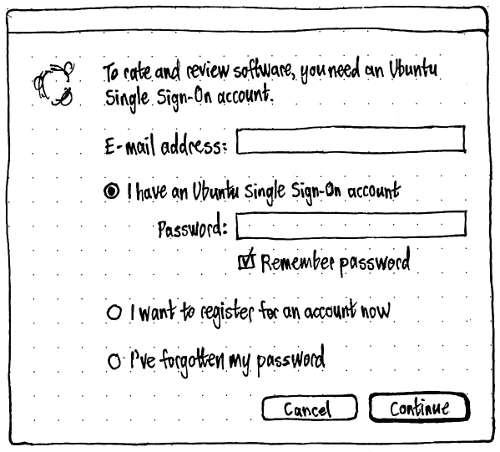 To rate and review software, you need an Ubuntu
Single Sign-On account.
E-mail address:
I have an Ubuntu Single Sign-On account
Password:
Remember password
I want to register for an account now
I've forgotten my password
Cancel Continue